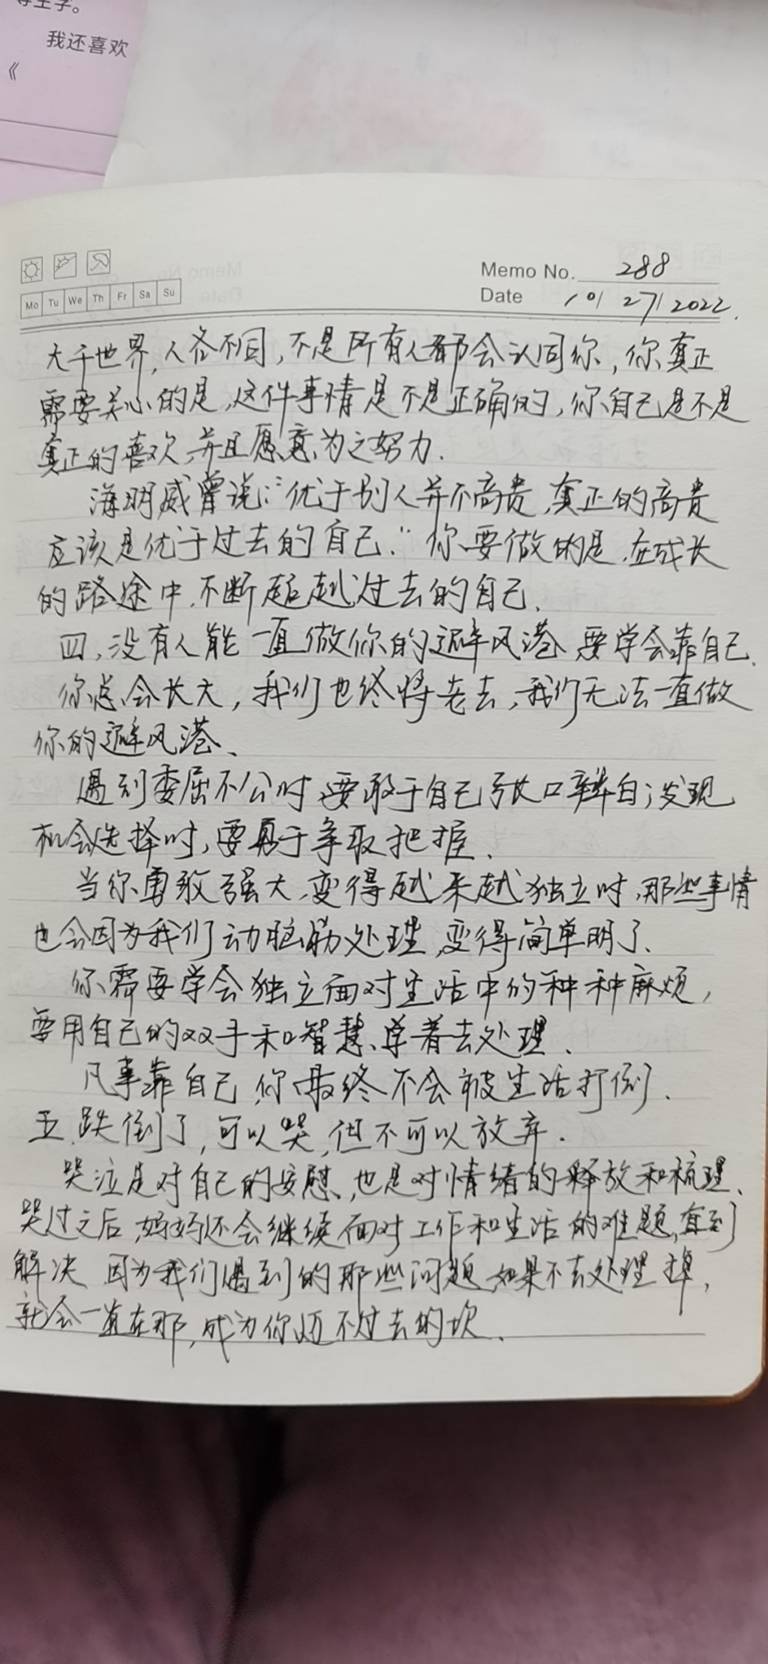 我还喜欢
《
Memo No. 288
Mo Tu We Th Fr Sa Su
Date 10/ 27/ 2022.
大千世界,人各不同,不是所有人都会认同你,你真正
需要关心的是,这件事情是不是正确的,你自己是不是
真正的喜欢,并且愿意为之努力.
海明威曾说:“优于别人并不高贵,真正的高贵
应该是优于过去的自己.”你要做的是,在成长
的路途中,不断超越过去的自己.
四、没有人能一直做你的避风港,要学会靠自己.
你总会长大,我们也终将老去,我们无法一直做
你的避风港、
遇到委屈不公时,要敢于自己张口辩白;发现
机会选择时,要勇于争取把握、
当你勇敢强大,变得越来越独立时,那些事情
也会因为我们动脑筋处理,变得简单明了、
你需要学会独立面对生活中的种种麻烦,
要用自己的双手和智慧、学着去处理、
凡事靠自己,你最终不会被生活打倒.
五.跌倒了,可以哭,但不可以放弃.
哭泣是对自己的安慰、也是对情绪的释放和梳理、
哭过之后,妈妈还会继续面对工作和生活的难题,直到
解决.因为我们遇到的那些问题,如果不去处理掉,
就会一直在那,成为你迈不过去的坎、